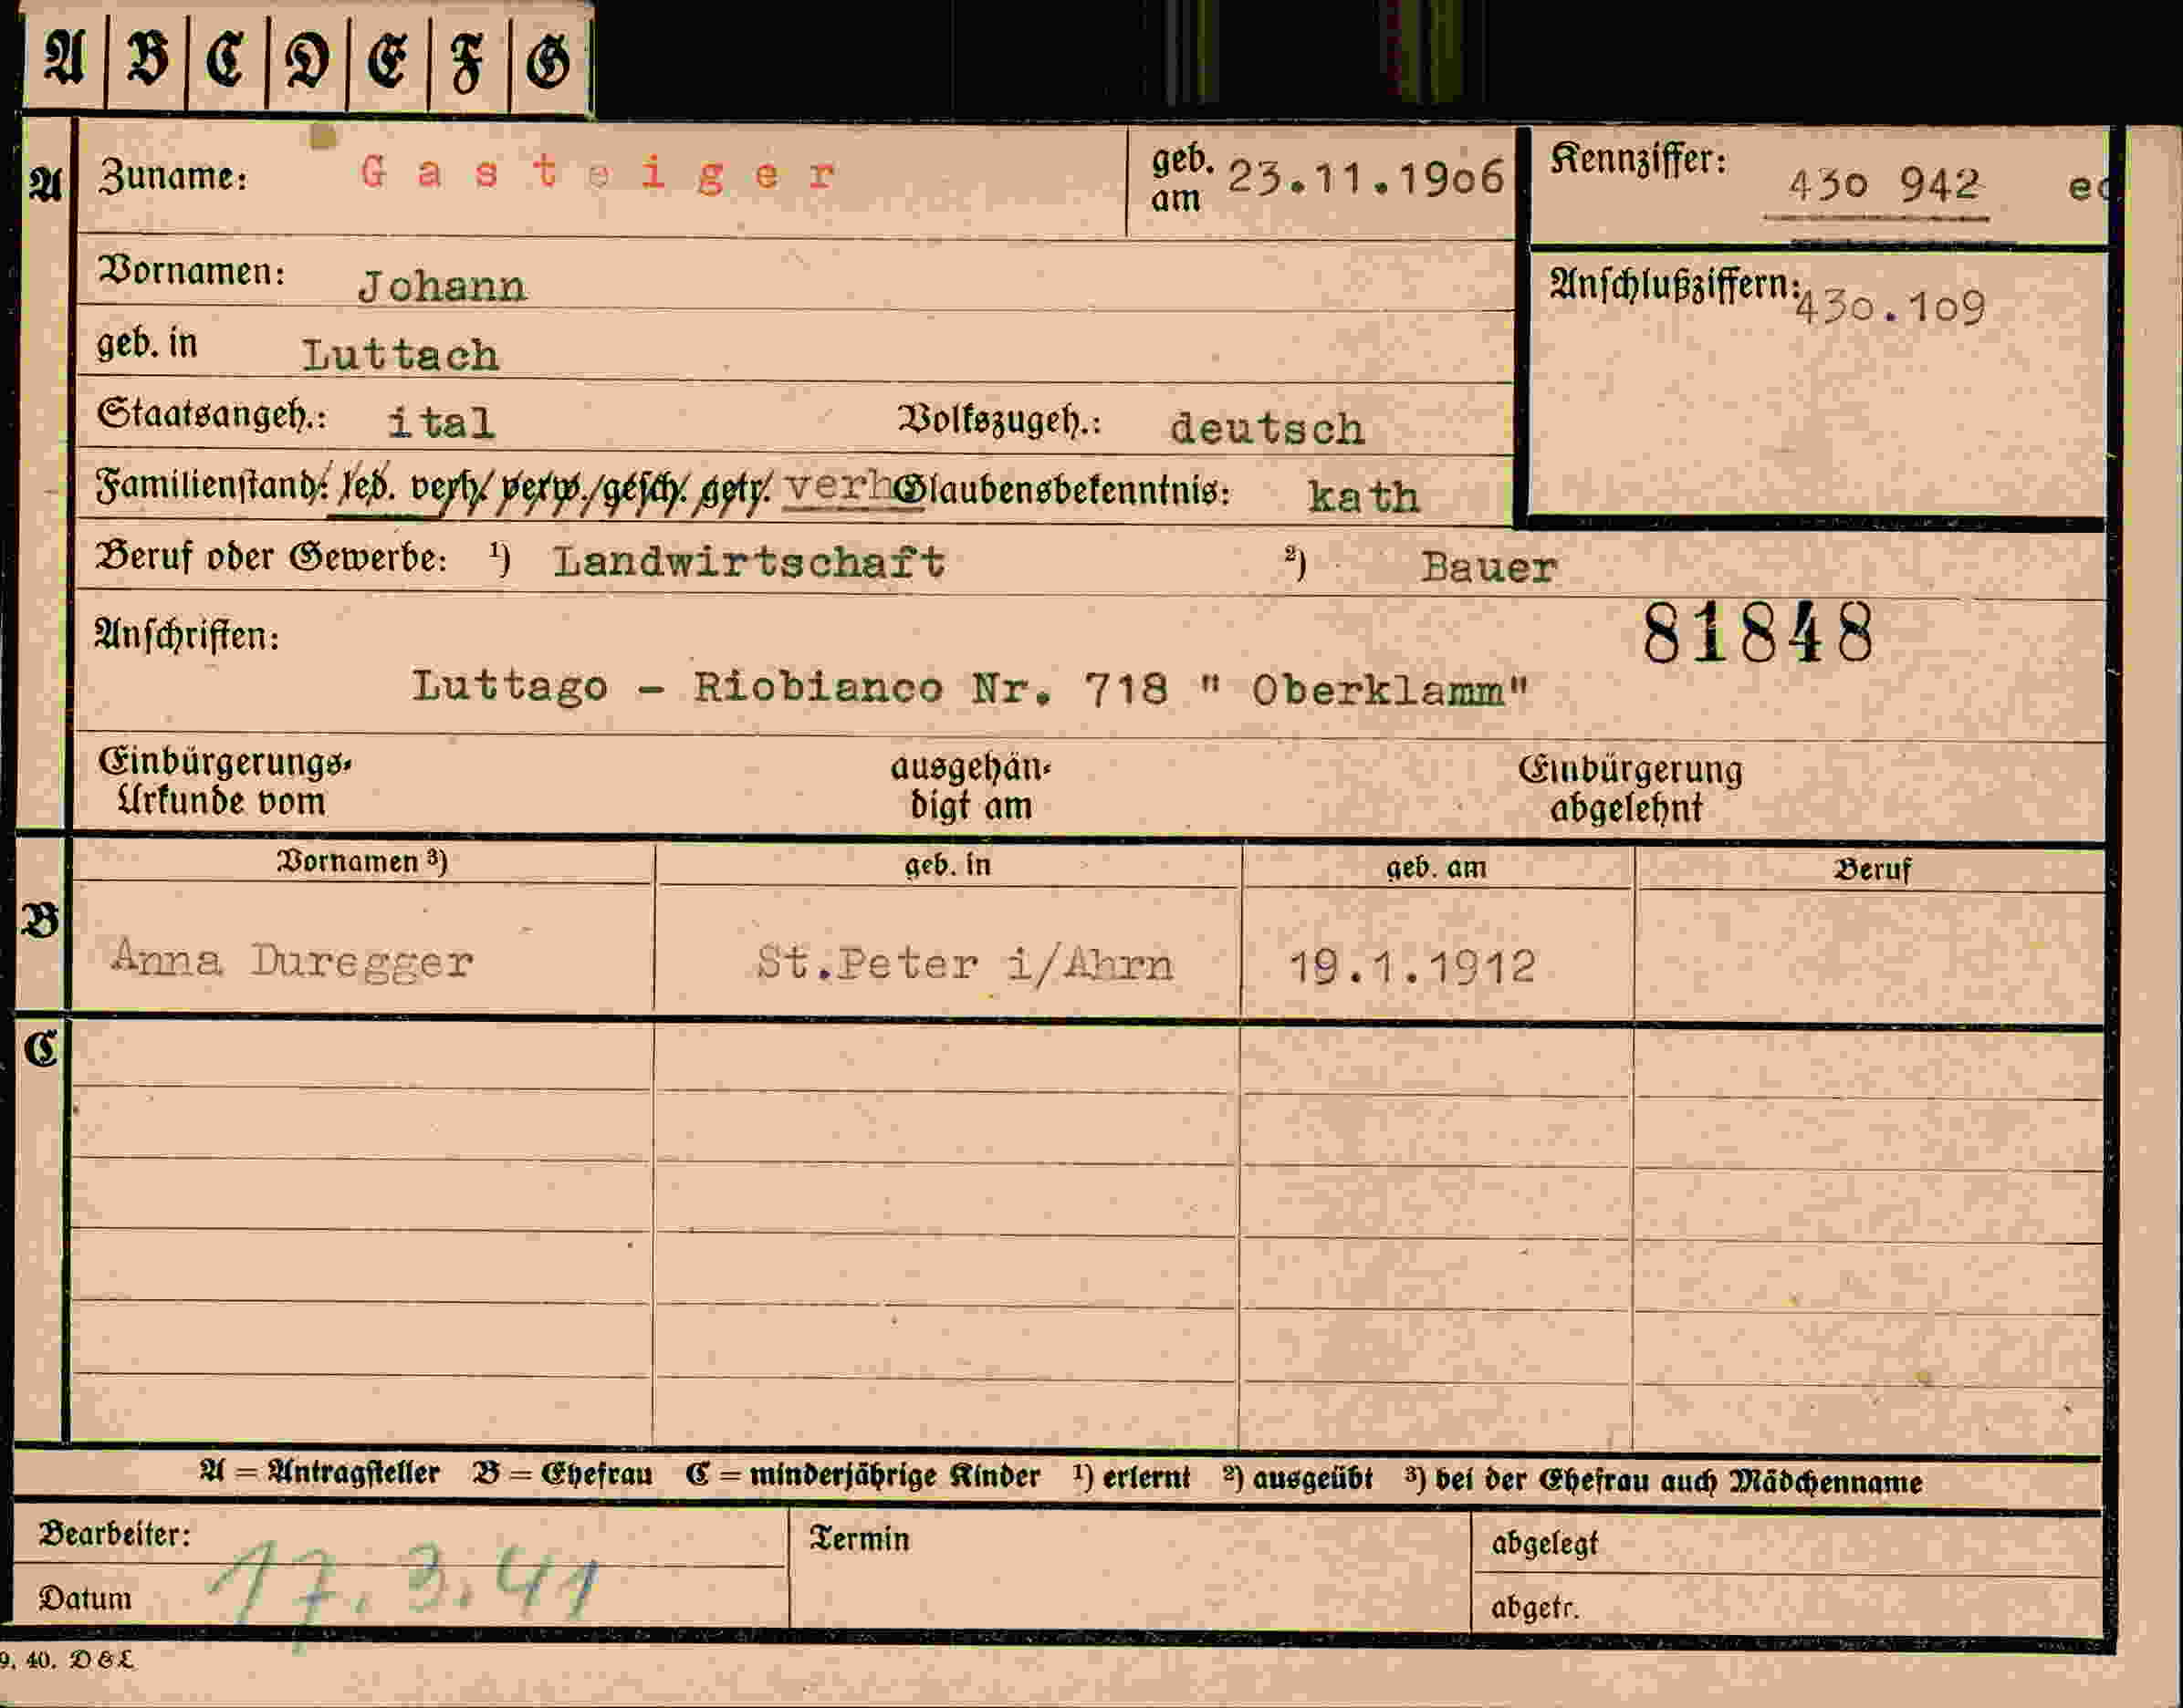 A B C D E F G
A Zuname: Gasteiger geb. am 23.11.1906 Kennziffer: 430 942
Vornamen: Johann Anschlußziffern: 430.109
geb. in Luttach
Staatsangeh.: ital Volkszugeh.: deutsch
Familienstand: led. verh. verw. gesch. getr. verh Glaubensbekenntnis: kath
Beruf oder Gewerbe: ¹) Landwirtschaft ²) Bauer
Anschriften: 81848
Luttago - Riobianco Nr. 718 " Oberklamm"
Einbürgerungs- ausgehän- Einbürgerung
Urkunde vom digt am abgelehnt
Vornamen ³) geb. in geb. am Beruf
B Anna Duregger St.Peter i/Ahrn 19.1.1912
C
A = Antragsteller B = Ehefrau C = minderjährige Kinder ¹) erlernt ²) ausgeübt ³) bei der Ehefrau auch Mädchenname
Bearbeiter: Termin abgelegt
Datum 17.3.41 abgetr.
9. 40. D & L